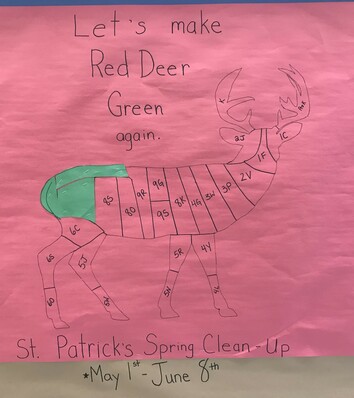 Let's make
Red Deer
Green
again.
K
PreK
2J
1C
1F
2V
3P
3W
4G
8K
9G
9S
9R
8D
8S
6C
6S
5J
5R
4Y
6D
St. Patrick's Spring Clean-Up
*May 1st - June 8th